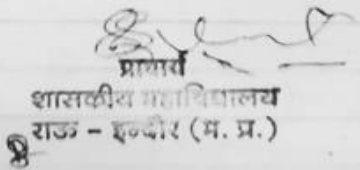 प्राचार्य
शासकीय महाविद्यालय
राऊ - इन्दौर (म. प्र.)